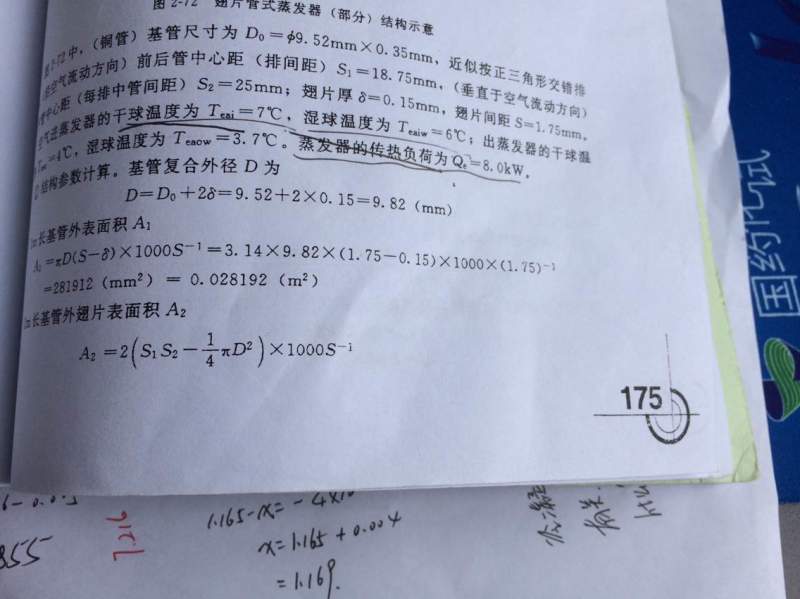 图2-72 翅片管式蒸发器（部分）结构示意
2-72中，（铜管）基管尺寸为 D₀=ϕ9.52mm×0.35mm，近似按正三角形交错排
空气流动方向）前后管中心距（排间距）S₁=18.75mm，（垂直于空气流动方向）
中心距（每排中管间距）S₂=25mm；翅片厚 δ=0.15mm，翅片间距 S=1.75mm。
气进蒸发器的干球温度为 Teai=7℃，湿球温度为 Teaiw=6℃；出蒸发器的干球温
=4℃，湿球温度为 Teaow=3.7℃。蒸发器的传热负荷为 Qe=8.0kW。
结构参数计算。基管复合外径 D 为
D=D₀+2δ=9.52+2×0.15=9.82（mm）
长基管外表面积 A₁
A₁=πD(S−δ)×1000S⁻¹=3.14×9.82×(1.75−0.15)×1000×(1.75)⁻¹
=281912（mm²）= 0.028192（m²）
长基管外翅片表面积 A₂
A₂=2(S₁S₂−1/4πD²)×1000S⁻¹
175
国药化试
1.165-x=-4×10
x=1.165+0.004
=1.169.
855
1.216